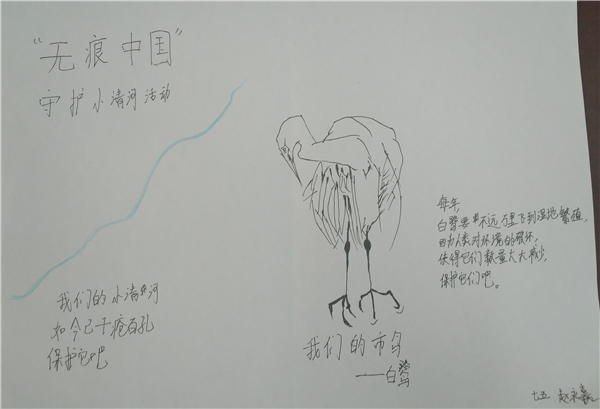 “无痕中国”
守护小清河活动
每年,
白鹭要不远万里飞到湿地繁殖,
因为人类对环境的破坏,
使得它们数量大大减少,
保护它们吧。
我们的小清河
如今已千疮百孔
保护它吧
我们的市鸟
——白鹭
七五 赵永